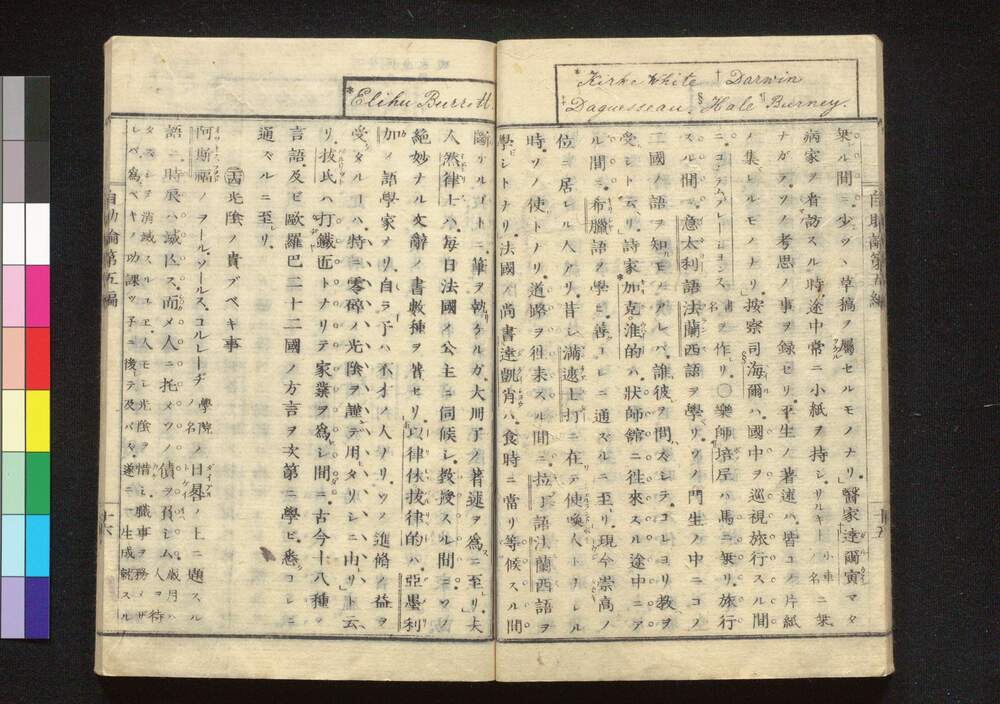 *Kirke White †Darwin
‡Daguesseau. §Hale ¶Burney.
自助論第五編
十五
架ル間ニ少ヅヽ草搞ヲ屬セルモノナリ醫家達爾寅マタ
病家ヲ看訪スル時途中常ニ小紙ヲ持シソルキー小車ノ名ニ架
ナガラソノ考思ノ事ヲ録セリ平生ノ著速ハ皆コノ片紙
ノ集レルモノナリ按察司海爾ハ國中ヲ巡視旅行スル間
ニコンテムプレーションス書名ヲ作リ○樂師培尼ハ馬ニ乘リ旅行
スル間ニ意太利語法蘭西語ヲ學リソノ門生ノ中ニコノ
二國ノ語ヲ知モノアレバ誰彼ヲ問ズシテコレヨリ教ヲ
受シト云リ詩家加克淮的ハ狀師館ニ徃來スル途中ニア
ル間ニ希臘語ヲ學ニ善コレニ通スルニ至リ現今崇高ノ
位ニ居レル人アリ昔シ滿遮士打ニ在テ使喚人トナレル
時ソノ使トナリ道路ヲ徃来スル間ニ拉丁語法蘭西語ヲ
學シトナリ法國ノ尚書達凱宵ハ食時ニ當リ等候スル間
*Elihu Burritt.
斷ガルゴトニ筆ヲ執タルガ大册子ノ著速ヲ爲ニ至リ夫
人然律士ハ毎日法國ノ公主ニ伺候シ教授スル間ニソノ
絶妙ナル文辭ノ書數種ヲ著セリ以律徠拔律的ハ亞墨利
加ノ語學家ナリ自ラ予ハ不才ノ人ナリソノ進脩ノ益ヲ
受タルコハ特ニ零碎ノ光陰ヲ謹テ用タリシニ由リト云
リ拔氏ハ打鐵匠トナリテ家業ヲ爲シ間ニ古今十八種ノ
言語及ビ歐羅巴二十二國ノ方言ヲ次第ニ學ビ悉コレニ
通スルニ至リ
光陰ノ貴ブベキ事
阿斯福ノヲールソールスコルレーヂ學院ノ名ノ日晷ノ上ニ題スル
語ニ時辰ハ滅盡ス而メ人ニ托メソノ債ヲ負シム
自助論第五編
十六